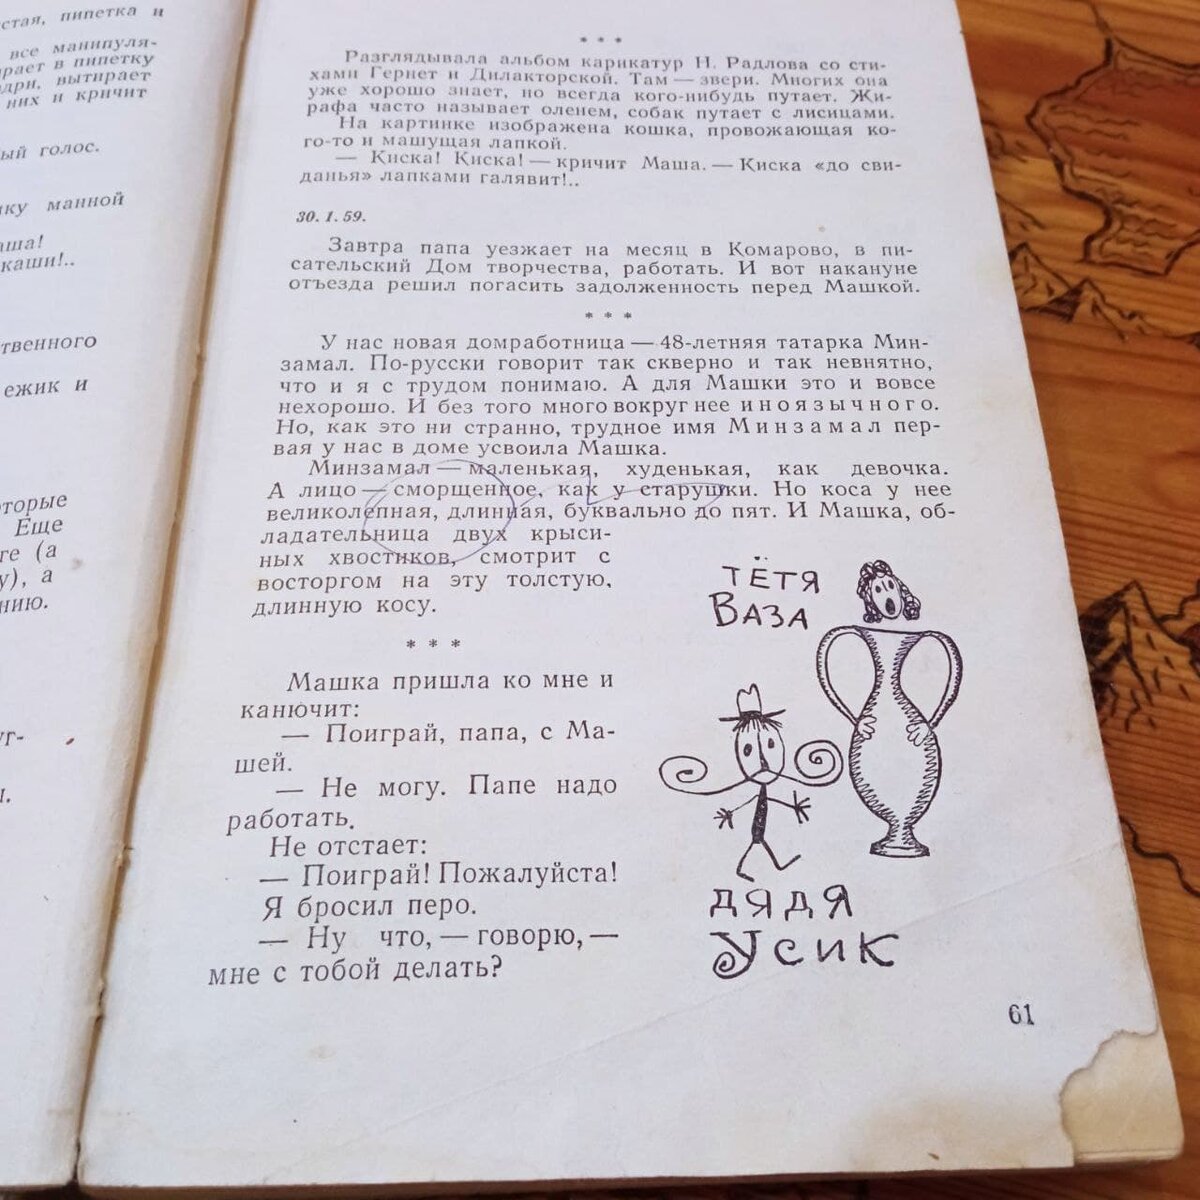 стая, пипетка и
все манипуля-
рает в пипетку
дри, вытирает
них и кричит
ый голос.
ку манной
аша!
каши!..
твенного
ежик и
оторые
Еще
ге (а
у), а
нию.
уг-
ы.
* * *
Разглядывала альбом карикатур Н. Радлова со сти-
хами Гернет и Дилакторской. Там — звери. Многих она
уже хорошо знает, но всегда кого-нибудь путает. Жи-
рафа часто называет оленем, собак путает с лисицами.
На картинке изображена кошка, провожающая ко-
го-то и машущая лапкой.
— Киска! Киска! — кричит Маша. — Киска «до сви-
данья» лапками галявит!..
30. 1. 59.
Завтра папа уезжает на месяц в Комарово, в пи-
сательский Дом творчества, работать. И вот накануне
отъезда решил погасить задолженность перед Машкой.
* * *
У нас новая домработница — 48-летняя татарка Мин-
замал. По-русски говорит так скверно и так невнятно,
что и я с трудом понимаю. А для Машки это и вовсе
нехорошо. И без того много вокруг нее иноязычного.
Но, как это ни странно, трудное имя Минзамал пер-
вая у нас в доме усвоила Машка.
Минзамал — маленькая, худенькая, как девочка.
А лицо — сморщенное, как у старушки. Но коса у нее
великолепная, длинная, буквально до пят. И Машка, об-
ладательница двух крыси-
ных хвостиков, смотрит с
восторгом на эту толстую,
длинную косу.
* * *
Машка пришла ко мне и
канючит:
— Поиграй, папа, с Ма-
шей.
— Не могу. Папе надо
работать.
Не отстает:
— Поиграй! Пожалуйста!
Я бросил перо.
— Ну что, — говорю, —
мне с тобой делать?
ТЁТЯ
ВАЗА
ДЯДЯ
УСИК
61